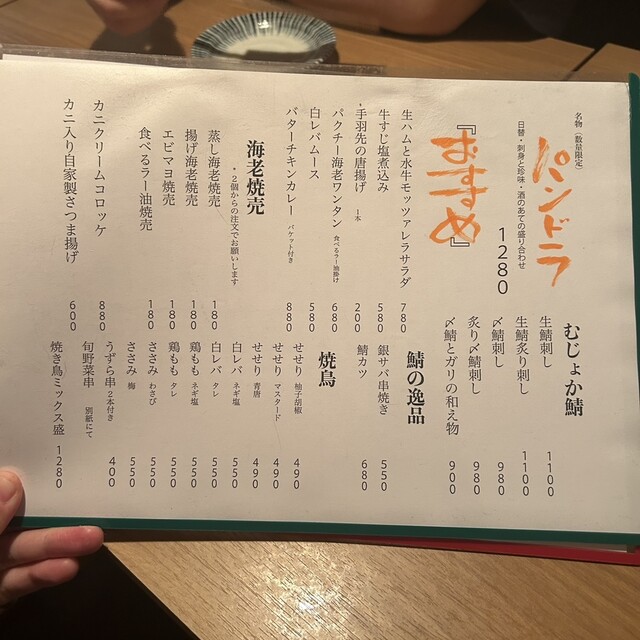 名物（数量限定）
パンドラ
日替・刺身と珍味・酒のあての盛り合わせ
1280
『おすすめ』
生ハムと水牛モッツァレラサラダ 780
牛すじ塩煮込み 580
手羽先の唐揚げ 1本 200
パクチー海老ワンタン 食べるラー油掛け 680
白レバムース 580
バターチキンカレー バケット付き 880
海老焼売
・2個からの注文でお願いします
蒸し海老焼売 180
揚げ海老焼売 180
エビマヨ焼売 180
食べるラー油焼売 180
カニクリームコロッケ 880
カニ入り自家製さつま揚げ 600
むじょか鯖
生鯖刺し 1100
生鯖炙り刺し 1100
〆鯖刺し 980
炙り〆鯖刺し 980
〆鯖とガリの和え物 900
鯖の逸品
銀サバ串焼き 550
鯖カツ 680
焼鳥
せせり 柚子胡椒 490
せせり マスタード 490
せせり 青唐 490
白レバ ネギ塩 550
白レバ タレ 550
鶏もも ネギ塩 550
鶏もも タレ 550
ささみ わさび 550
ささみ 梅 550
うずら串 2本付き 400
旬野菜串 別紙にて
焼き鳥ミックス盛 1280